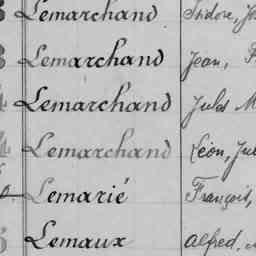 Lemarchand Isidore,
Lemarchand Jean,
Lemarchand Jules M
Lemarchand Léon, Jul
Lemarié François,
Lemaux Alfred.